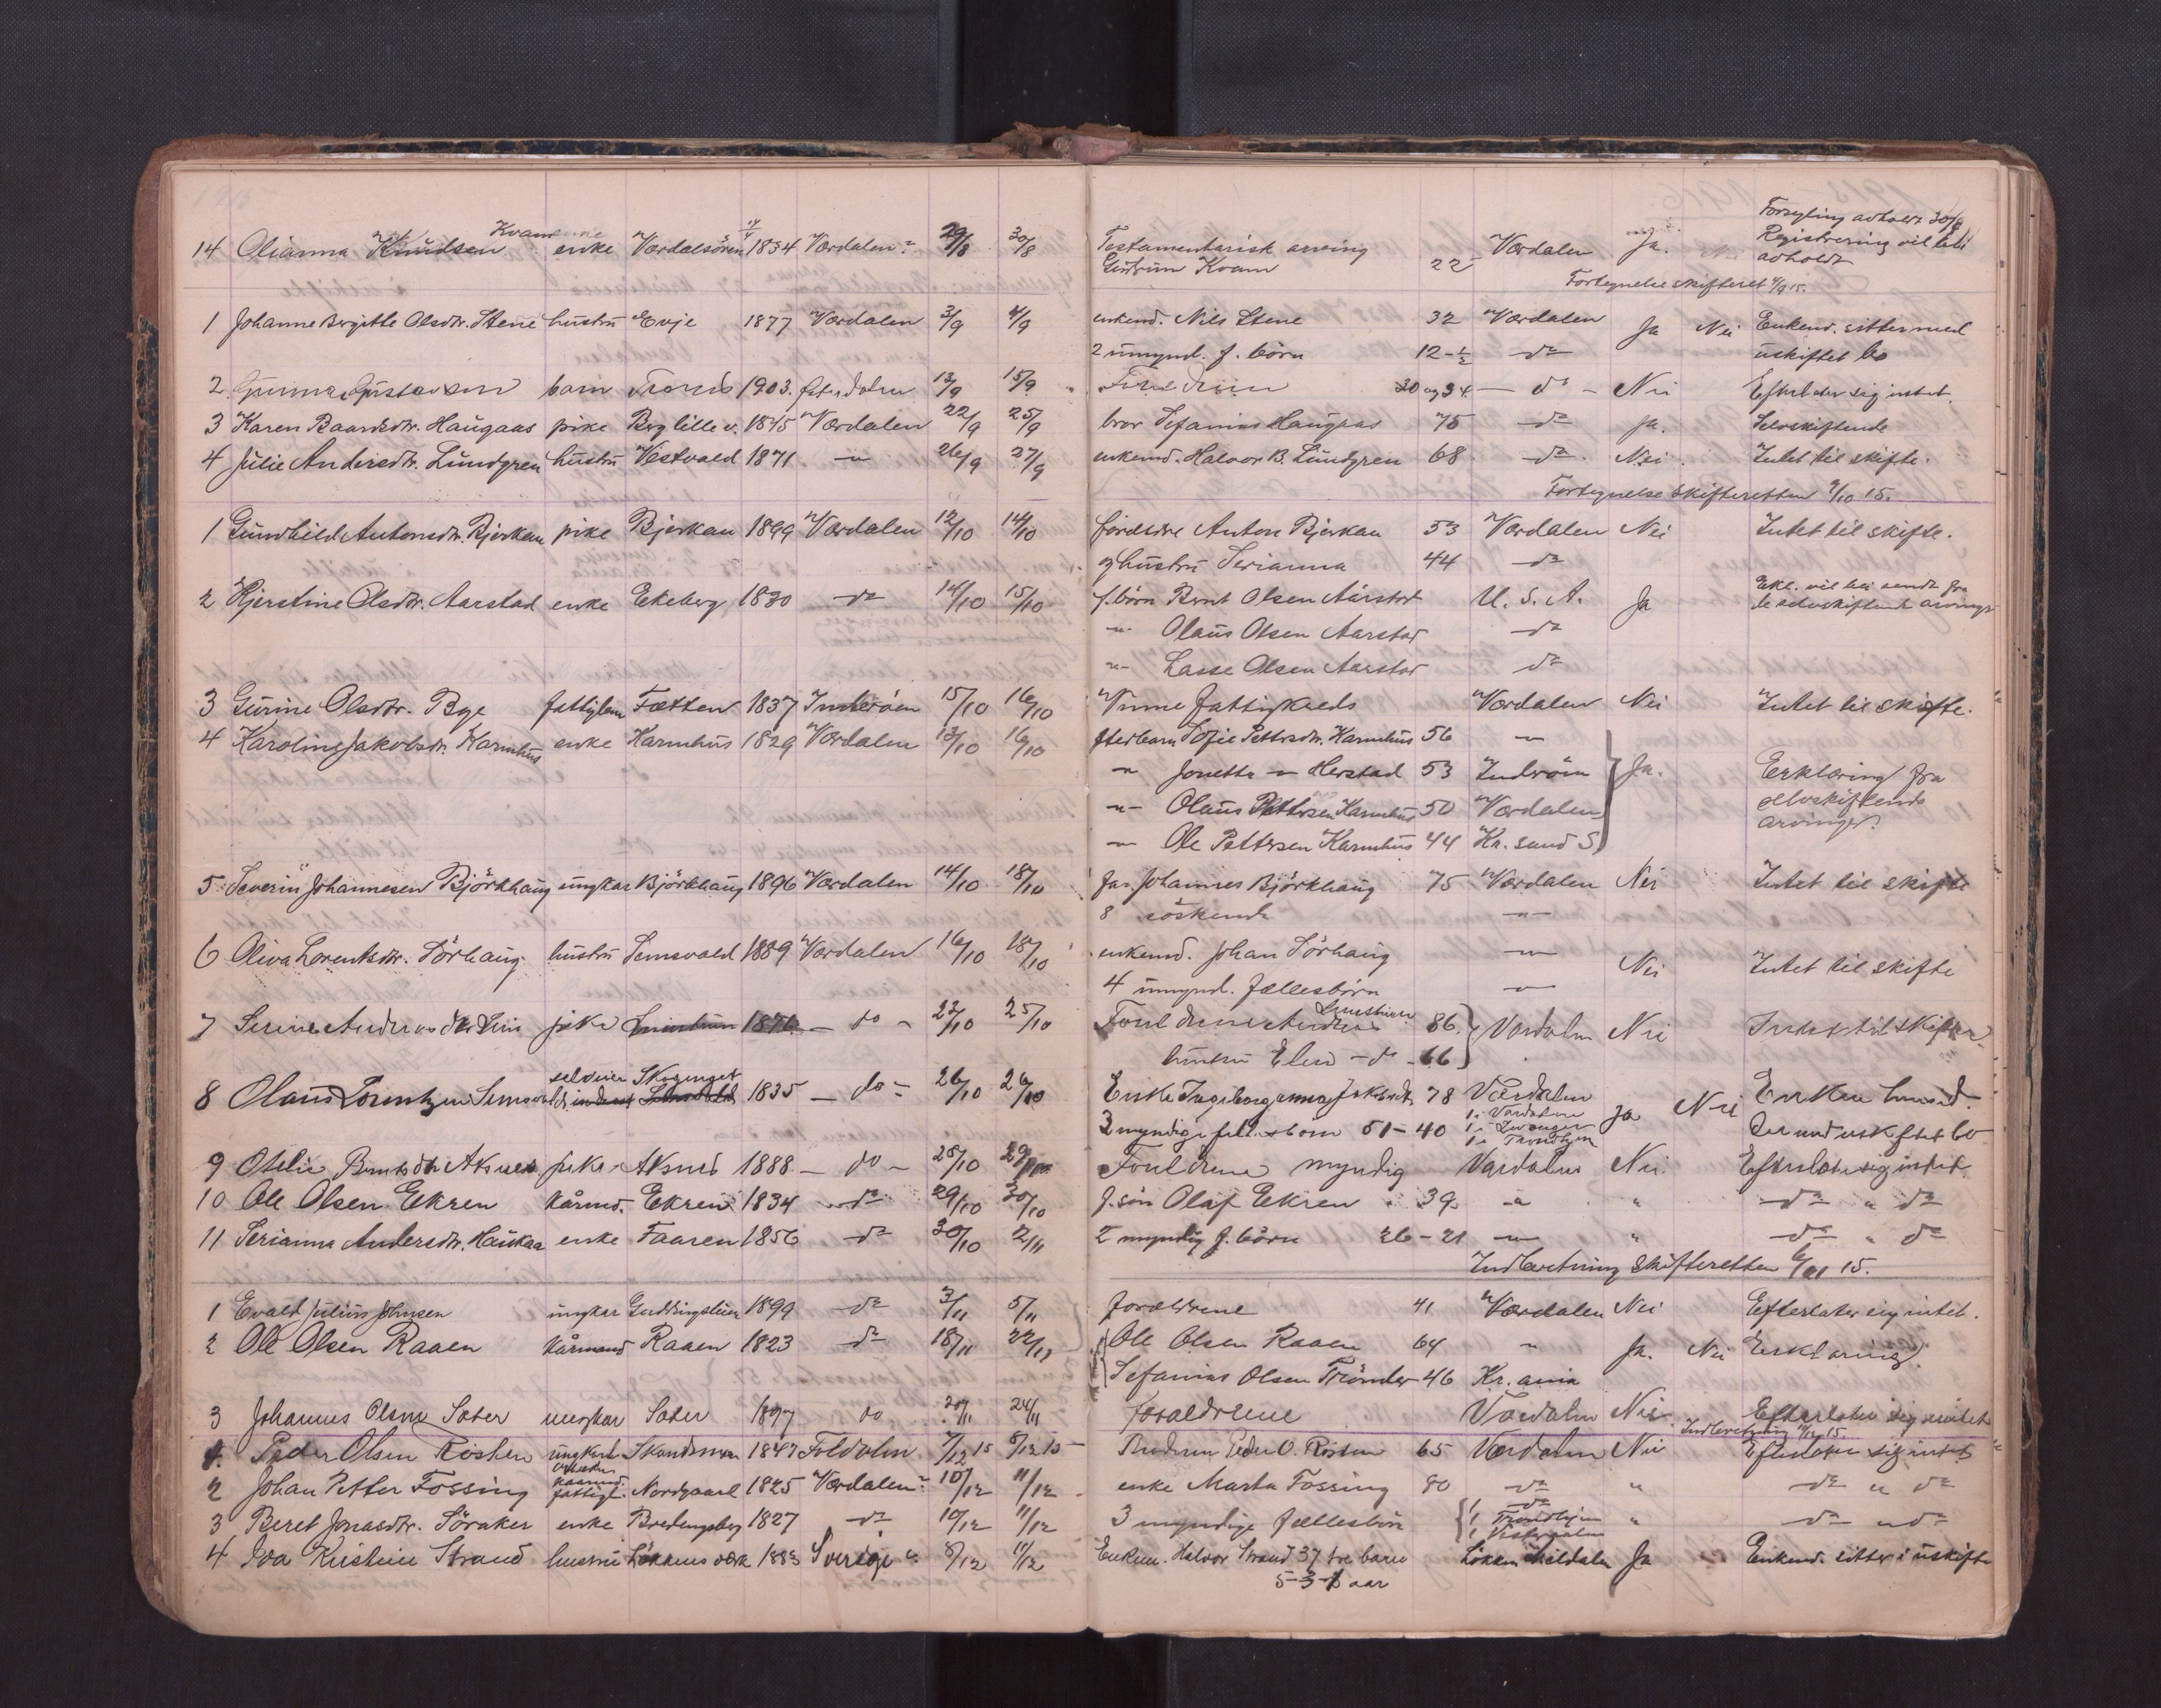 Kvam Forsegling avholdt 30/8
14 Olianna Knudsen enke Værdalsören 14/4 1834 Værdalen 29/8 30/8 Testamentarisk arving Værdalen Ja. Registrering vil bli
Gudrun Kvam 22 avholdt
Fortegnelse skifteret 4/9 15.
1 Johanne Bergitte Olsdtr. Stene hustru Evje 1877 Værdalen 3/9 4/9 enkemd. Nils Stene 32 Værdalen Ja Nei Enkem. sitter med
2 umynd. f. börn 12-½ do uskiftet bo
2 Gunnar Gustavsen barn 1903. 13/9 15/9 Foreldrene 30 og 34 - do - Nei Efterlader sig intet.
3 Karen Baardsdtr. Haugaas pike Berg lille v. 1845 Værdalen 22/9 25/9 bror Sefanias Haugaas 75 do Ja. Selvskiftende
4 Julie Andersdtr. Lundgren hustru Vestvold 1871 - " - 26/9 27/9 enkemd. Halvor B. Lundgren 68 do. Nei. Intet til skifte.
Fortegnelse skifteretten 9/10 15.
1 Gunhild Antonsdtr. Bjerkan pike Bjerkan 1899 Værdalen 12/10 14/10 foreldre Anton Bjerkan 53 Værdalen Nei Intet til skifte.
og hustru Serianna 44 do
2 Kjerstine Olsdtr. Aarstad enke Ekeberg 1830 do 14/10 15/10 f. börn Bernt Olsen Aarstad U. S. A. Ja Erkl. vil bli sendt fra
de selvskiftende arvinger
- " - Olaus Olsen Aarstad do
- " - Lasse Olsen Aarstad do
3 Gurine Olsdtr. Bye fattiglem Fætten 1837 Inderöen 15/10 16/10 Vinne fattigkreds Værdalen Nei Intet til skifte.
4 Karoline Jakobsdtr. Karmhus enke Karmhus 1829 Værdalen 13/10 16/10 efterbarn Sofie Pettersdtr. Karmhus 56 - " -
- " - Jonetta - " - Herstad 53 Inderöen Ja. Erklæring fra
- " - Olaus Pettersen Karmhus 50 Værdalen selvskiftende
- " - Ole Pettersen Karmhus 44 Kr. sund S arvinger.
5 Severin Johannesen Björkhaug ungkar Björkhaug 1896 Værdalen 14/10 18/10 far Johannes Björkhaug 75 Værdalen Nei Intet til skifte
8 söskende - " -
6 Oliva Lorentsdtr. Sörhaug hustru Semsvald 1889 Værdalen 16/10 18/10 enkemd. Johan Sörhaug - " - Nei Intet til skifte
4 umynd. fællesbörn - " -
7 Serine Andreasdtr pike 1876 - do - 23/10 25/10 86 Værdalen Nei Intet til skifte.
hustru Elen - do - 66
selveier Skogenget
8 Olaus Lorentzen 1835 - do - 26/10 26/10 Enke Ingeborganna Jakobsdtr. 78 Værdalen Ja Nei Enken hensid-
3 myndige fællesbörn 51-40 1 i Værdalen 1 i Levanger 1 i Trondhjem der med uskiftet bo
9 Otelie Berntsdtr Aksnes pike Aksnes 1888 - do - 28/10 Foreldrene myndig Værdalen Nei Efterlater sig intet
10 Ole Olsen Ekren kårmd. Ekren 1834 do 29/10 30/10 f. sön Olaf Ekren 39 " " do " do
11 Serianna Andersdtr. Haukaa enke Faaren 1856 do 30/10 2/11 2 myndig f. börn 26-21 - " - " do " do
Indberetning skifteretten 6/11 15.
1 Evald Julius Johnsen ungkar 1899 do 3/11 5/11 forældrene 41 Værdalen Nei Efterlater sig intet.
2 Ole Olsen Raaen kårmand Raaen 1823 do 18/11 22/11 Ole Olsen Raaen 64 " Ja. Nei Erklæring.
Sefanias Olsen Trönder 46 Kr. ania
3 Johannes Olsen Sæter ungkar Sæter 1897 do 20/11 24/11 forældrene Værdalen Nei Efterlater sig intet
Indberetning 15.
1. Peder Olsen ungkar 1847 7/12 15 8/12 15 Peder O. 65 Værdalen Nei Efterlater sig intet
2 Johan Petter Fossing kaarmd. fattigl. Nordgaard 1825 Værdalen 10/12 11/12 enke Marta Fossing 80 do " do " do
3 Beret Jonasdtr. Söraker enke 1827 do 10/12 11/12 3 myndige fællesbörn 1 do 1 Trondhjem 1 " do " do
4 Ida Kristine Strand hustru Lökkens værk 1883 Sverige 8/12 11/12 Enkem. Halvor Strand 37 tre barn Løkken Meldalen Ja Enkemd. sitter i uskifte
5-3-1 aar